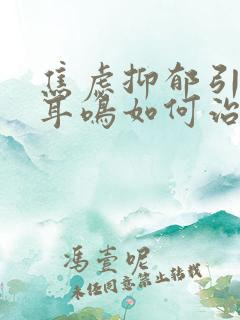 焦虑抑郁引
耳鸣如何治
冯壹呢
未经同意禁止转载